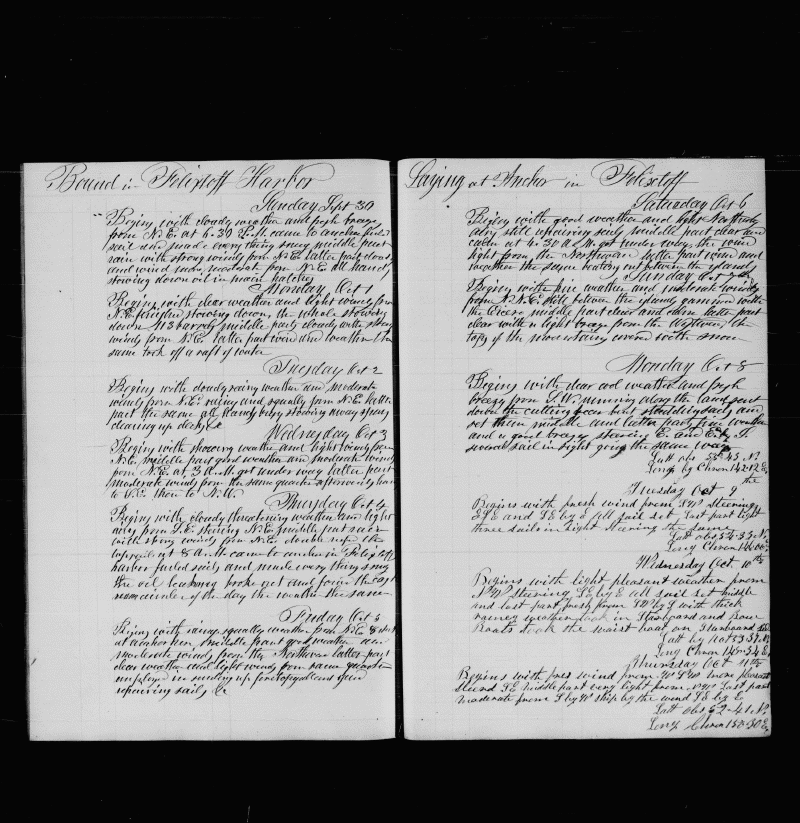 Bound in Felixtoff Harbor
Sunday Sept 30
Begins with cloudy weather and fresh breeze
from N.E. at 6.30 P.M. came to anchor furled
sail and made every thing snug middle part
rain with strong winds from N.E. latter part cloudy
and wind more moderate from N.E. all hands
stowing down oil in main hatches
Monday Oct 1
Begins with clear weather and light winds from
N.E. finished stowing down, the whole stowing
down 113 barrels middle part cloudy with strong
winds from N.E. latter part wind and weather the
same took off a raft of water
Tuesday Oct 2
Begins with cloudy rainy weather and moderate
winds from N.E. rainy and squally from N.E. latter
part the same all hands busy stowing away spars
clearing up decks &c
Wednesday Oct 3
Begins with showery weather and light winds from
N.E. middle part good weather and moderate winds
from N.E. at 3 A.M. got under way latter part
moderate winds from the same quarter
to N.E. then to N.W.
Thursday Oct 4
Begins with cloudy threatening weather and light
airs from S.E. steering N.E. middle part rain
with strong winds from N.E. double reefed the
topsails at 8 A.M. came to anchor in Felixtoff
harbor furled sails and made every thing snug
the oil broke out and the
remainder of the day the weather the same
Friday Oct 5
Begins with rainy squally weather from N.E. Ship
at anchor middle part good weather and
moderate winds from the Northward latter part
clear weather and light winds from same quarter
employed in sending up foretopgallant yard
repairing sails &c
Laying at Anchor in Felixtoff
Saturday Oct 6
Begins with good weather and light Northerly
airs still repairing sails middle part clear and
calm at 4.30 A.M. got under way, the wind
light from the Northward latter part wind and
weather the same beating out between the islands
Sunday Oct 7
Begins with fine weather and moderate winds
from N.N.E. still between the islands gammed with
the Cicero middle part clear and calm latter part
clear with a light breeze from the Westward, the
tops of the mountains covered with snow
Monday Oct 8
Begins with clear cool weather and fresh
breeze from S.W. running along the land sent
down the cutting
set them middle and latter parts fine weather
and a good breeze steering E. and E by S.
several sail in sight going the same way
Latt obs 55-45 N
Long by Chron 142-12 E
Tuesday Oct 9th
Begins with fresh wind from SW Steering
ESE and SE by E all sail set Last part light
three sails in sight Steering the same
Latt obs 54-33 N
Long Chron
Wednesday Oct 10th
Begins with light pleasant weather from
NW steering SE by E all sail set middle
and last part fresh from SW by S with thick
rainey weather took in Starboard and Bow
Boats took the waist boat on Starboard
Latt by Act 53-37 N
Long Chron 148-34 E
Thursday Oct 11th
Begins with fres wind from W SW more pleasant
Steerd SE Middle part very light from NW Last part
moderate from S by W ship by the wind SE by E
Latt obs 52-41 N
Long Chron 150-30 E